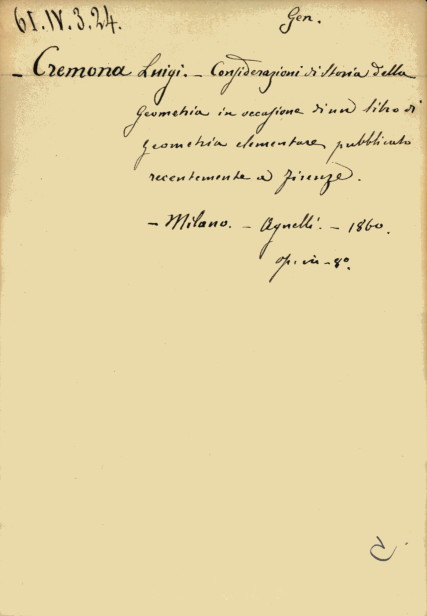 61.IV.3.24.
Gen.
- Cremona Luigi. - Considerazioni di Storia della
Geometria in occasione di un libro di
geometria elementare pubblicato
recentemente a Firenze.
- Milano. - Agnelli. - 1860.
op. in - 8º.